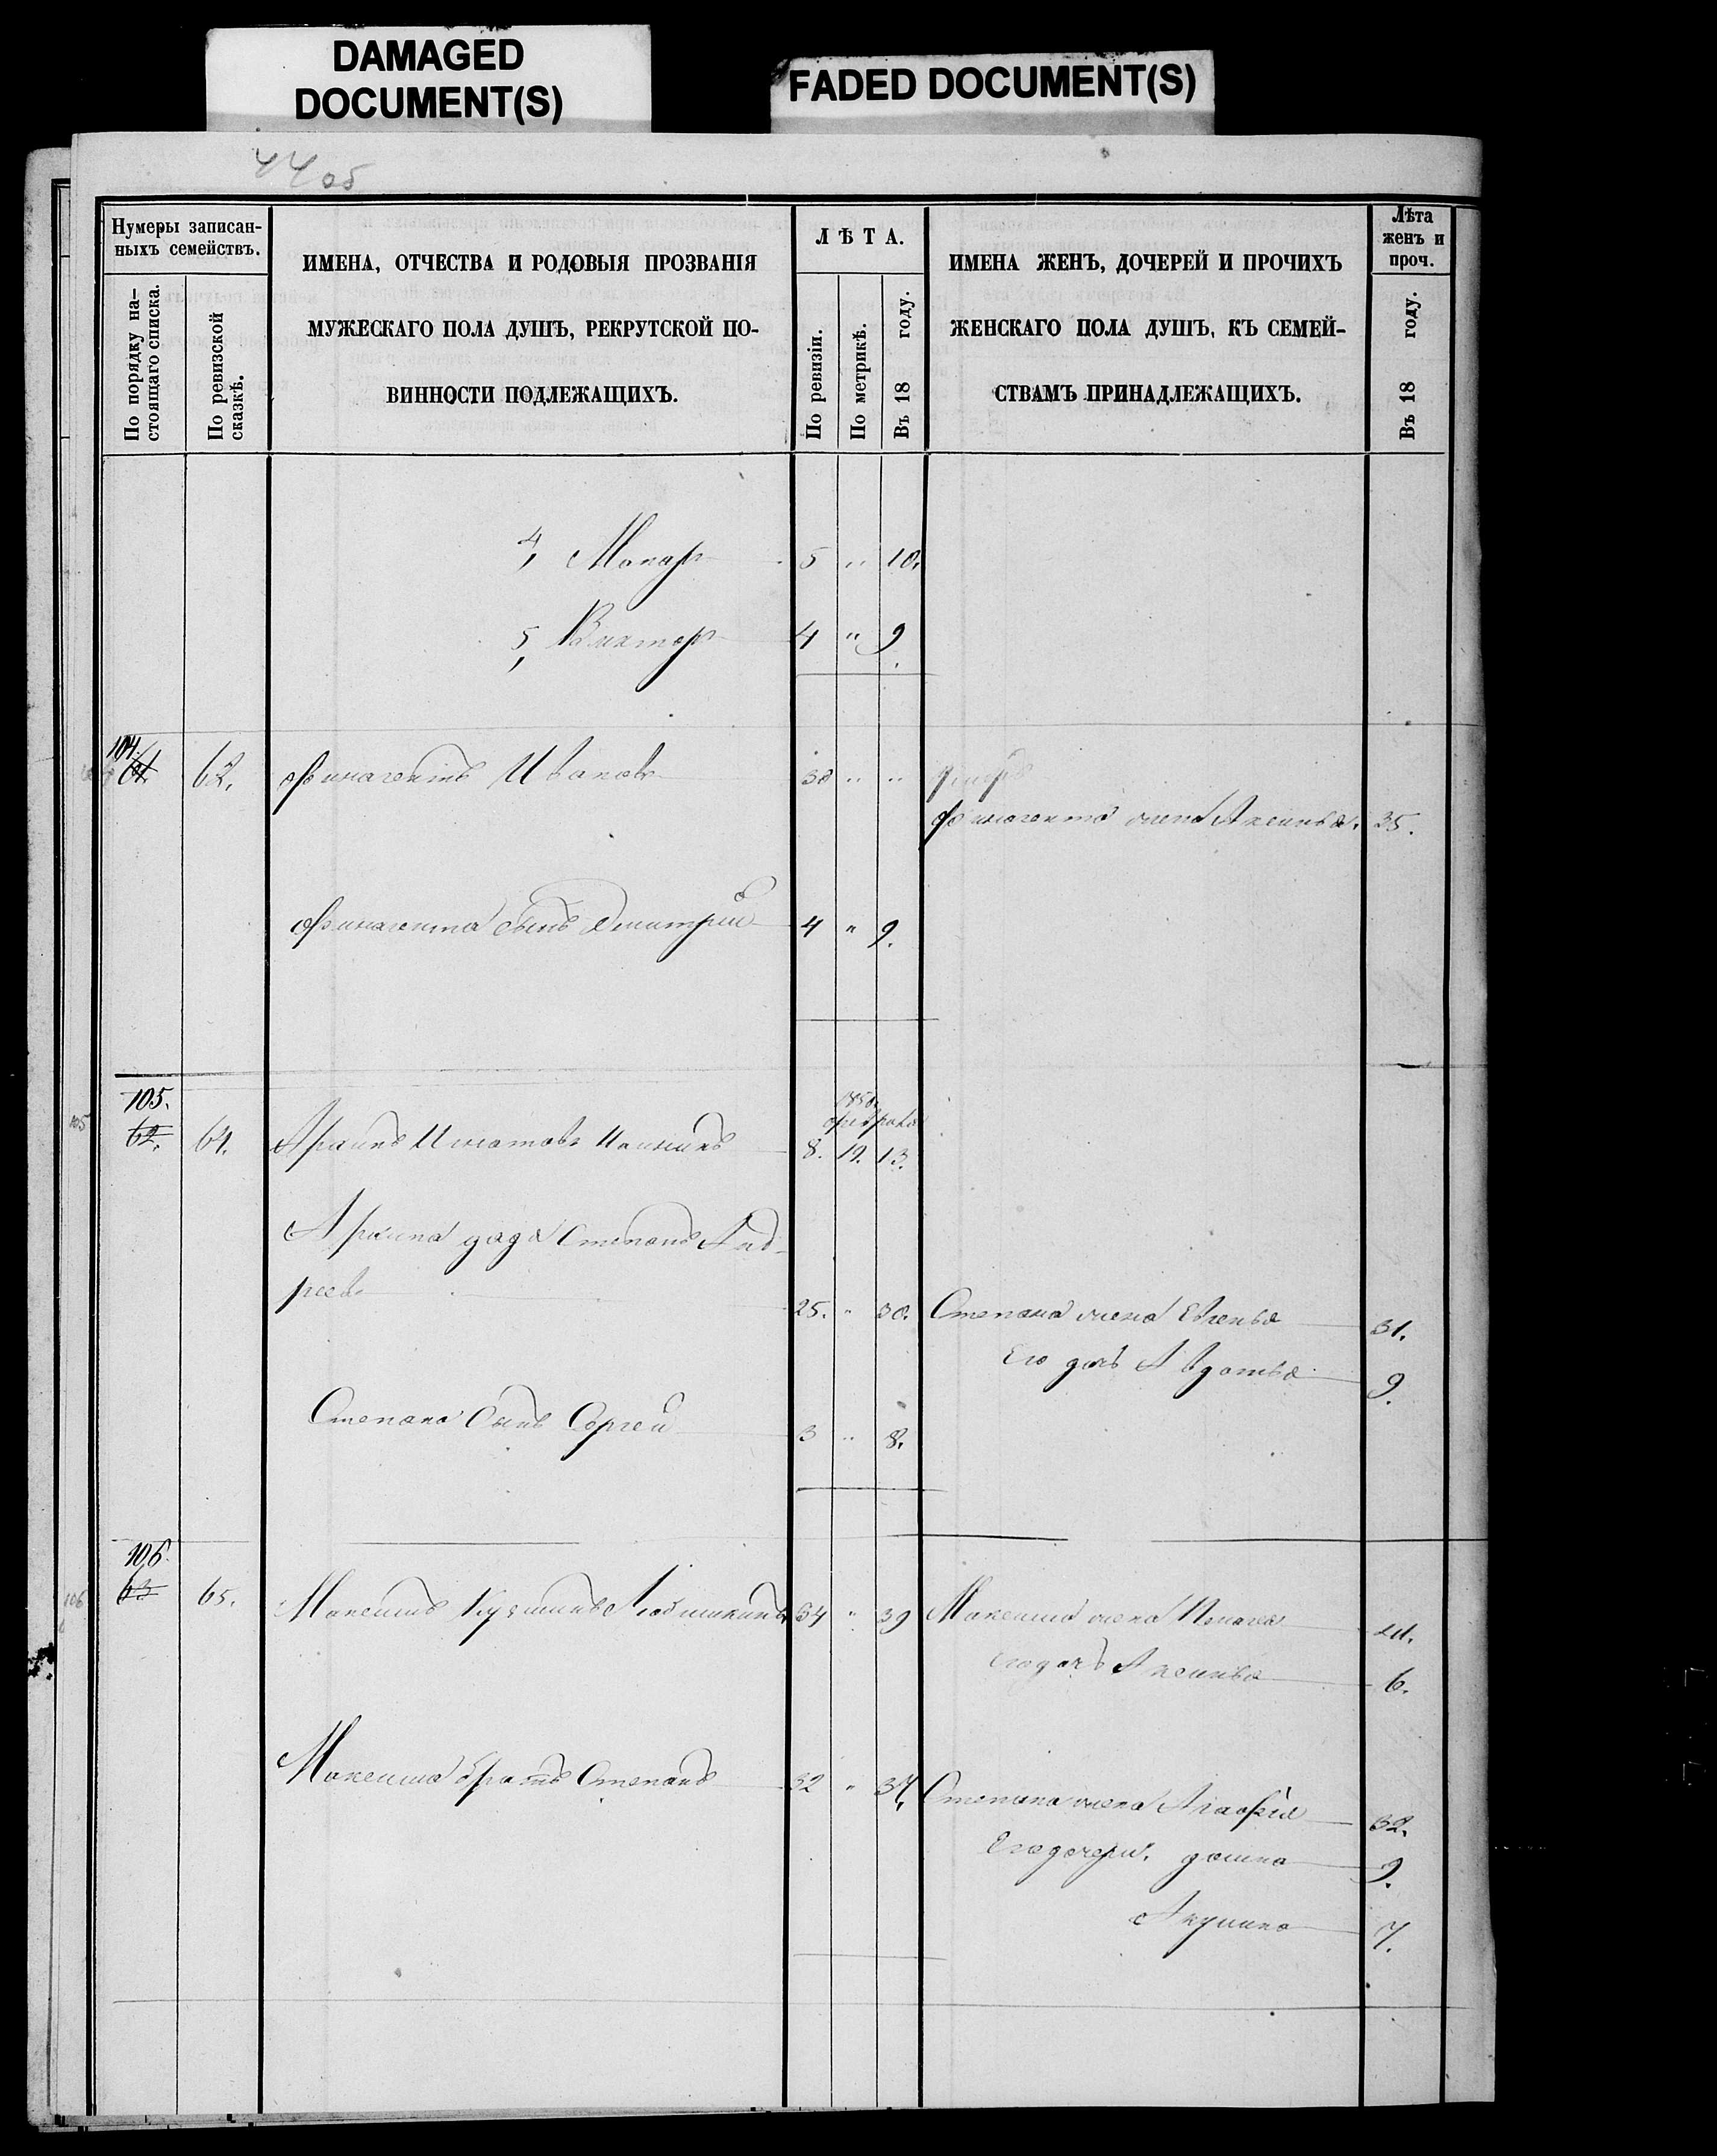 DAMAGED
DOCUMENT(S)
FADED DOCUMENT(S)
44 об
Нумеры записан-
ныхъ семействъ.
По порядку на-
стоящаго списка.
По ревизской
сказкѣ.
ИМЕНА, ОТЧЕСТВА И РОДОВЫЯ ПРОЗВАНІЯ
МУЖЕСКАГО ПОЛА ДУШЪ, РЕКРУТСКОЙ ПО-
ВИННОСТИ ПОДЛЕЖАЩИХЪ.
ЛѢТА.
По ревизіи.
По метрикѣ.
Въ 18 году.
ИМЕНА ЖЕНЪ, ДОЧЕРЕЙ И ПРОЧИХЪ
ЖЕНСКАГО ПОЛА ДУШЪ, КЪ СЕМЕЙ-
СТВАМЪ ПРИНАДЛЕЖАЩИХЪ.
Лѣта
женъ и
проч.
Въ 18 году.
4, Макар 5 " 10.
5, Виктор 4 " 9.
104.
61. 62. Финагентъ Иванов 38 " "
Финагента жена Аксинья. 35.
Финагента сынъ Дмитрий 4 " 9.
105.
105 62. 64. Игнатов 8. 19. 13.
февраля
дядя Степанъ Анд-
реев 25. " 30. Степана жена Евгенья 31.
Его дочь Авдотья 9.
Степана Сынъ Сергей 3 " 8.
106.
106 63 65. Максимъ Кузминъ Любишкинъ 34 " 39 Максима жена Пелагея 41.
Его дочь Аксинья 6.
Максима братъ Степанъ 32 " 37, Степана жена 32.
Его дочери. Домна 9.
Акулина 7.